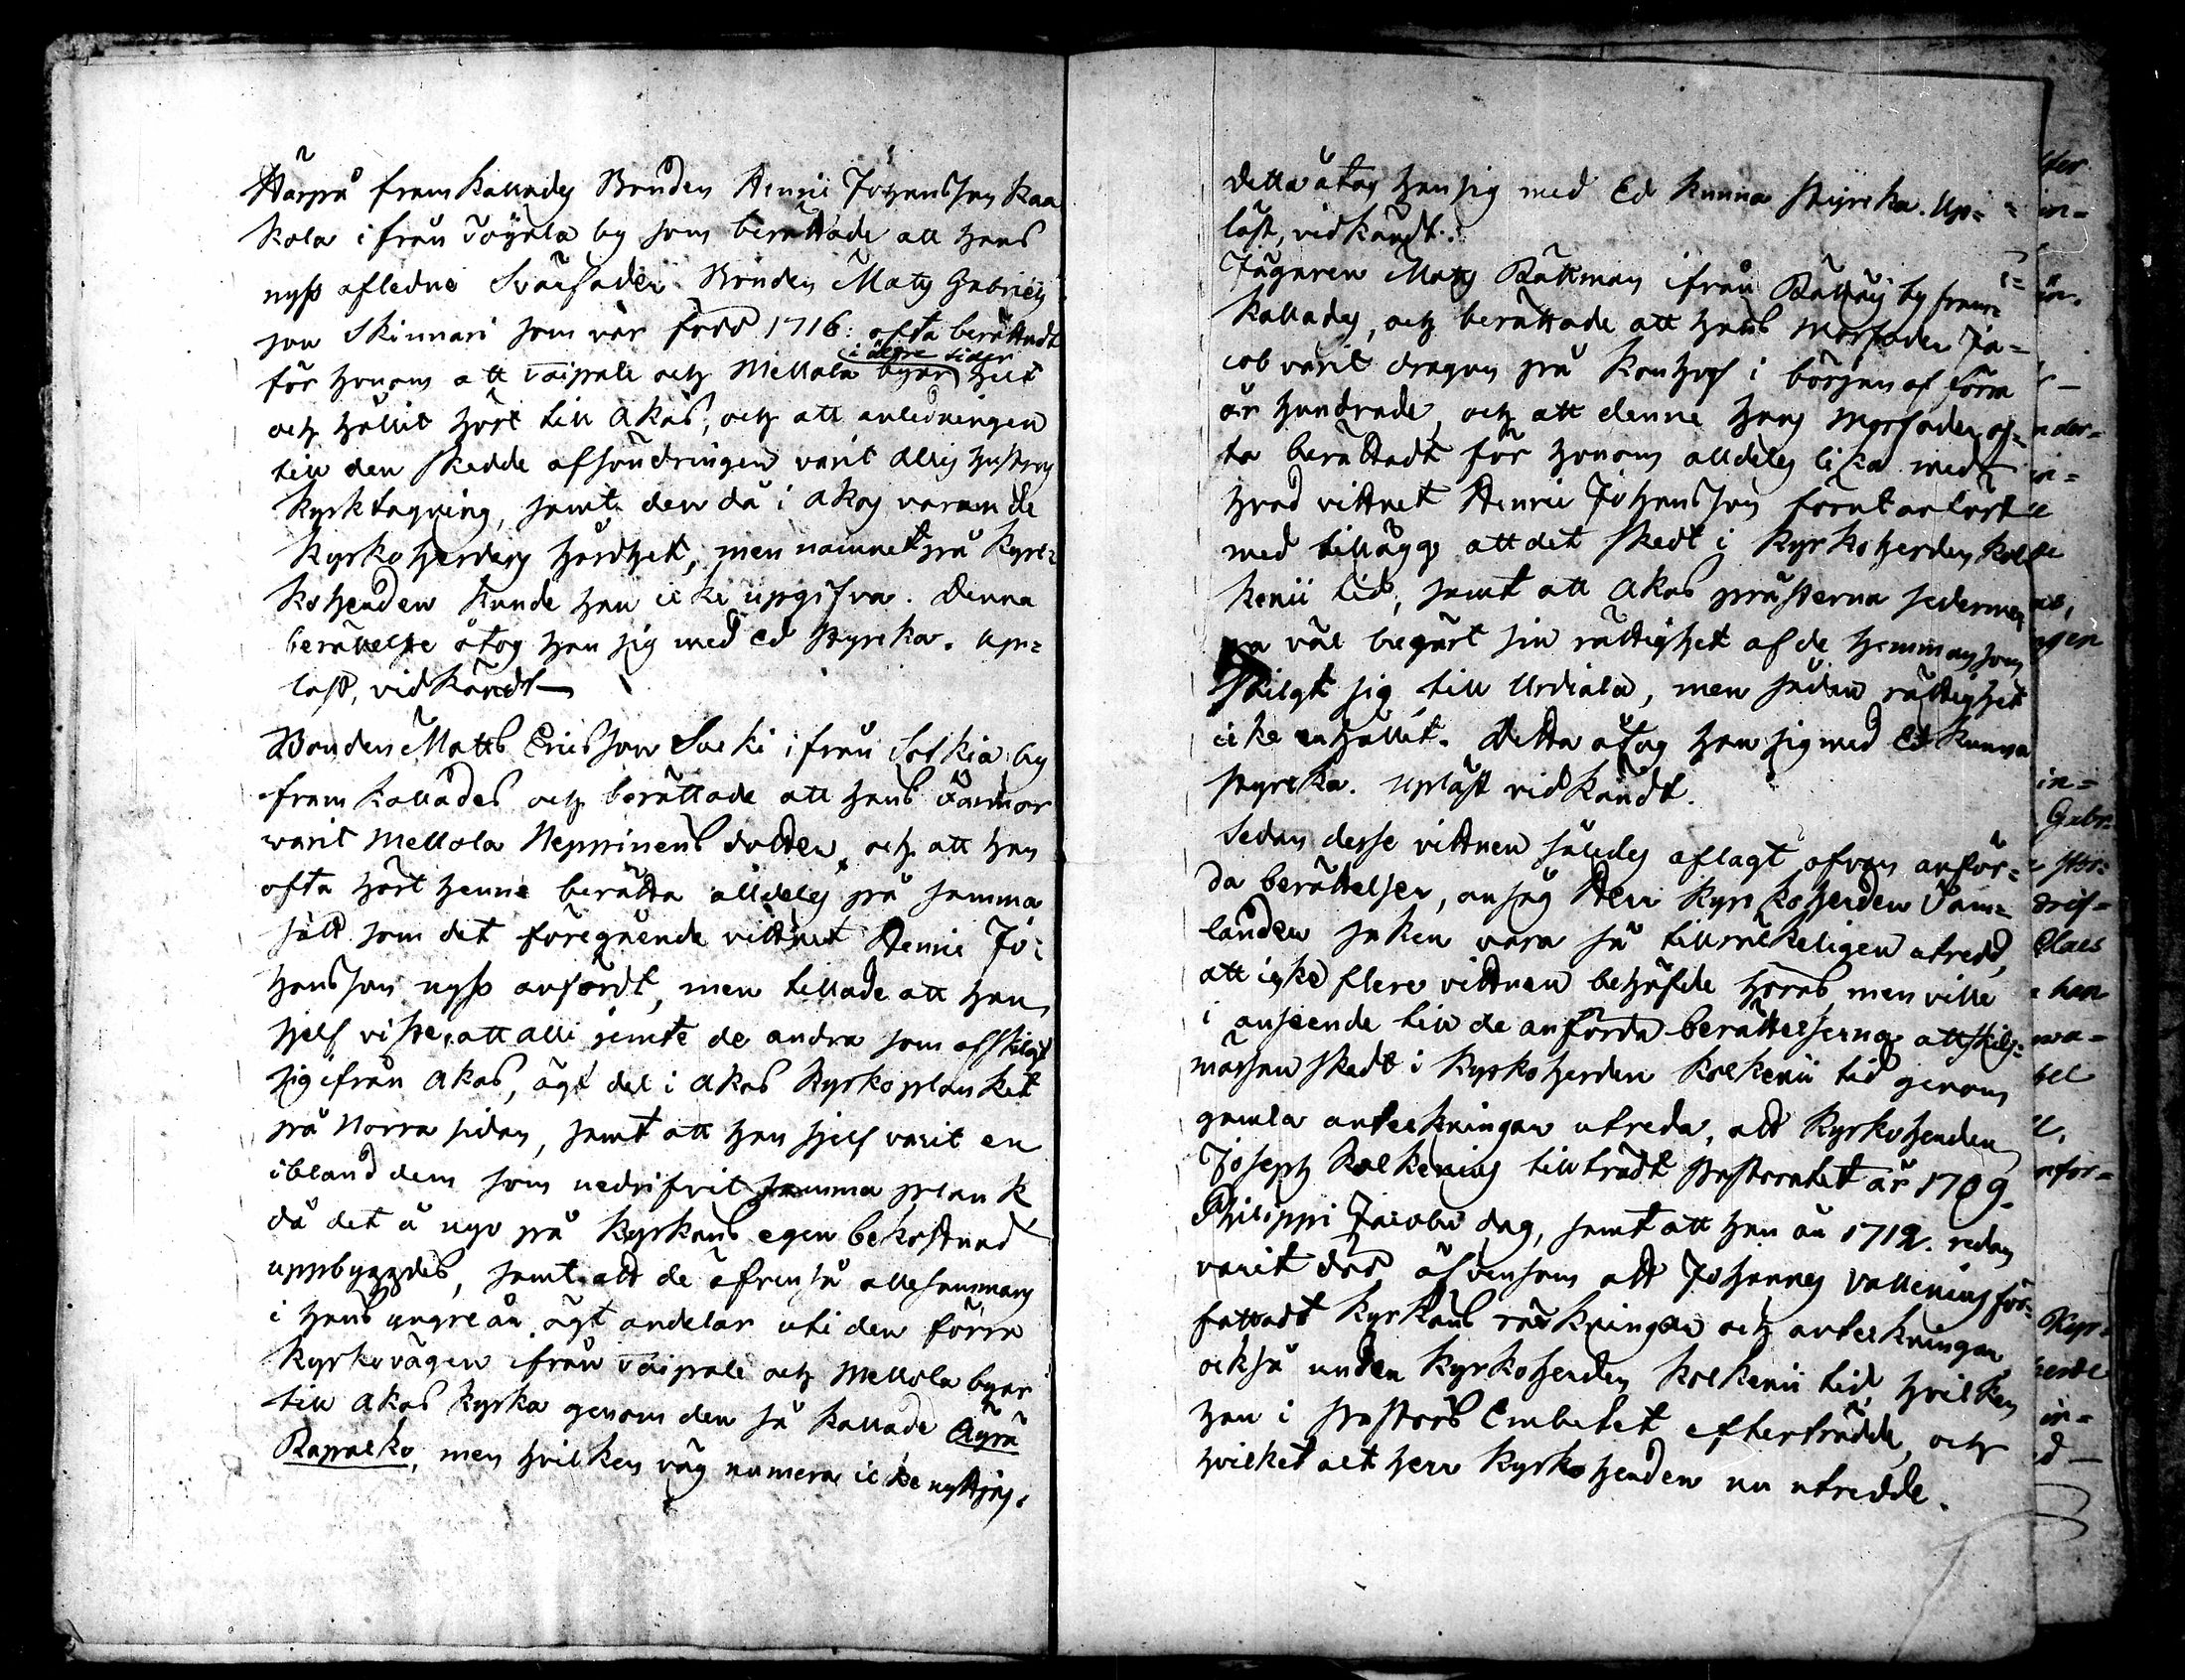 Härpå framkallades Bonden Henric Johansson Kaa
kola ifrån Töyala by som berättade att hans
nyss afledne Svärfader Bonden Mats Gabriels
son Skinnari som var född 1716: ofta berättadt
i äldre tider
för honom att Vaipali och Mellola byar hit
och hållit hört till Akas, och att anledningen
till den skedde afsöndringen varit Allis hustrus
kyrktagning, samt den då i Akas varande
Kyrkoherdens hårdhet, men namnet på Kyr=
koherden kunde han icke upgifva. Denna
berättelse åtog han sig med ed styrka. Up=
läst, vidkändt
Bonden Matts Ericsson Sarki ifrån Sotkia by
framkallades och berättade att hans farmor
varit Mellola Neppinens dotter, och att han
ofta hört henne berätta alldeles på samma
sätt som det föregående vittnet Henric Jo=
hansson nyss anfördt, men tillade att han
sjelf viste, att Alli jemte de andra som afskilgt
sig ifrån Akas, ägt del i Akas Kyrkoplanket
på Norra sidan, samt att han sjelf varit en
ibland dem som nedrifvit samma plank
då det å nyo på Kyrkans egen bekostnad
uppbyggdes, samt att de äfven så allesammans
i hans yngre år ägt andelar uti den förra
Kyrkovägen ifrån Vaipali och Mellola byar
till Akas Kyrka genom den så kallade Äyrä
Rapakko, men hvilken väg numera icke nyttjas.
Detta åtog han sig med Ed kunna styrka. Up=
läst, vidkändt.
Jägaren Mats Bäckman ifrån by fram=
kallades, och berättade att hans Morfader Ja=
cob varit dragon på Konhof i början af förra
år hundrade, och att denne hans Morfader of=
ta berättadt för honom alldeles lika med
hvad vittnet Henric Johansson förut anfört
med tillägg att det skedt i Kyrkoherdens Kol
kenii tid, samt att Akas prästerna sederme
ra väl begärt sin rättighet af de hemman som
skilgt sig till Urdiala, men sådan rättighet
icke erhållit. Detta åtog han sig med Ed kunna
styrka. Upläst vidkändt.
Sedan desse vittnen således aflagt ofvan anför=
da berättelser, ansåg Herr Kyrkoherden Väm=
länder saken vara så tillräckeligen utredd,
att icke flere vittnen behöfde höras, men ville
i anseende till de anförda berättelserna att skilj=
mässan skedt i Kyrkoherden Kolkenii tid genom
gamla anteckningar utreda, att Kyrkoherden
Joseph Kolkenius tillträdt Pastoratet år 1709.
Philippi Jacobi dag, samt att han år 1712. redan
varit död, äfvensom att Johannes Vallenius för=
fattadt Kyrkans räkningar och anteckningar
också under Kyrkoherden Kolkenii tid, hvilken
han i Pastors Embetet efterträdde, och
hvilket alt Herr Kyrkoherden nu utredde.